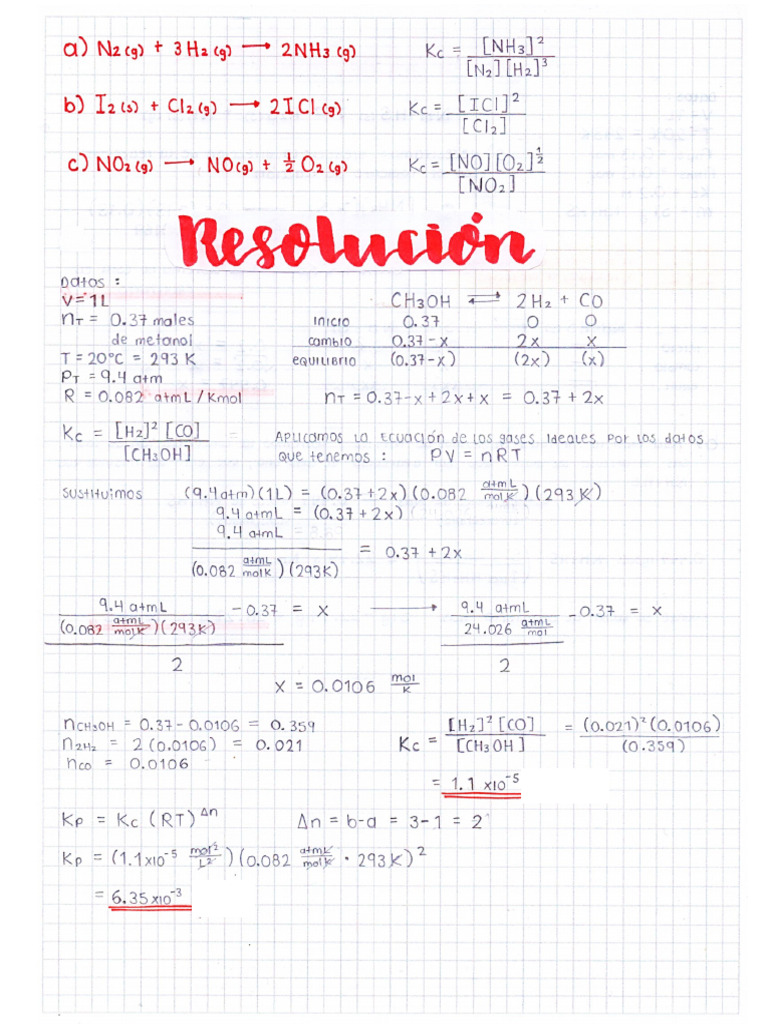 a) N2(g) + 3H2(g) → 2NH3(g) Kc = [NH3]² / [N2][H2]³
b) I2(s) + Cl2(g) → 2ICl(g) Kc = [ICl]² / [Cl2]
c) NO2(g) → NO(g) + 1/2 O2(g) Kc = [NO][O2]^1/2 / [NO2]
Resolución
Datos :
V = 1L CH3OH ⇌ 2H2 + CO
nT = 0.37 moles inicio 0.37 0 0
de metanol cambio 0.37-x 2x x
T = 20°C = 293 K equilibrio (0.37-x) (2x) (x)
PT = 9.4 atm
R = 0.082 atmL/Kmol nT = 0.37-x + 2x + x = 0.37 + 2x
Kc = [H2]² [CO] / [CH3OH] Aplicamos la ecuación de los gases ideales por los datos
que tenemos : PV = nRT
sustituimos (9.4atm)(1L) = (0.37+2x)(0.082 atmL/molK)(293K)
9.4 atmL = (0.37+2x)
9.4 atmL / (0.082 atmL/molK)(293K) = 0.37 + 2x
9.4 atmL / (0.082 atmL/molK)(293K) - 0.37 = x → 9.4 atmL / 24.026 atmL/mol - 0.37 = x
2 2
x = 0.0106 mol/K
nCH3OH = 0.37 - 0.0106 = 0.359
n2H2 = 2(0.0106) = 0.021
nCO = 0.0106
Kc = [H2]² [CO] / [CH3OH] = (0.021)²(0.0106) / (0.359)
= 1.1 x10⁻⁵
Kp = Kc (RT)^Δn Δn = b-a = 3-1 = 2
Kp = (1.1x10⁻⁵ mol²/L²)(0.082 atmL/molK · 293K)²
= 6.35x10⁻³